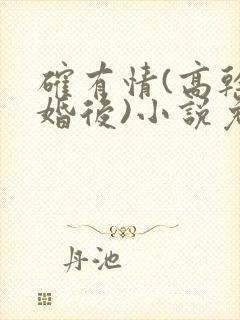 確有情(高幹
婚後)小說
丹池